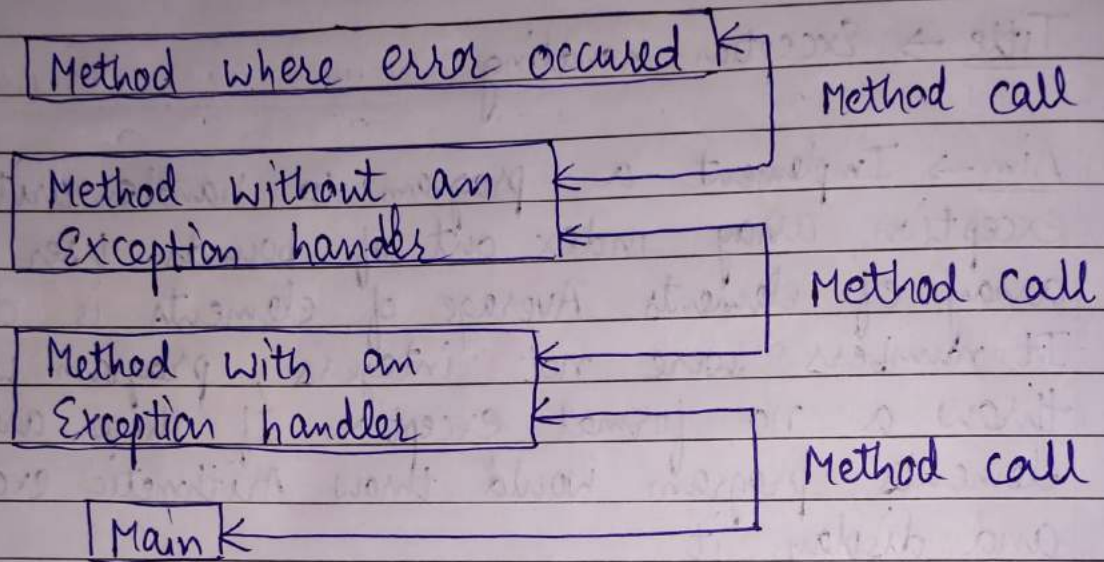 Method where error occured
Method call
Method without an
Exception handler
Method call
Method with an
Exception handler
Method call
Main